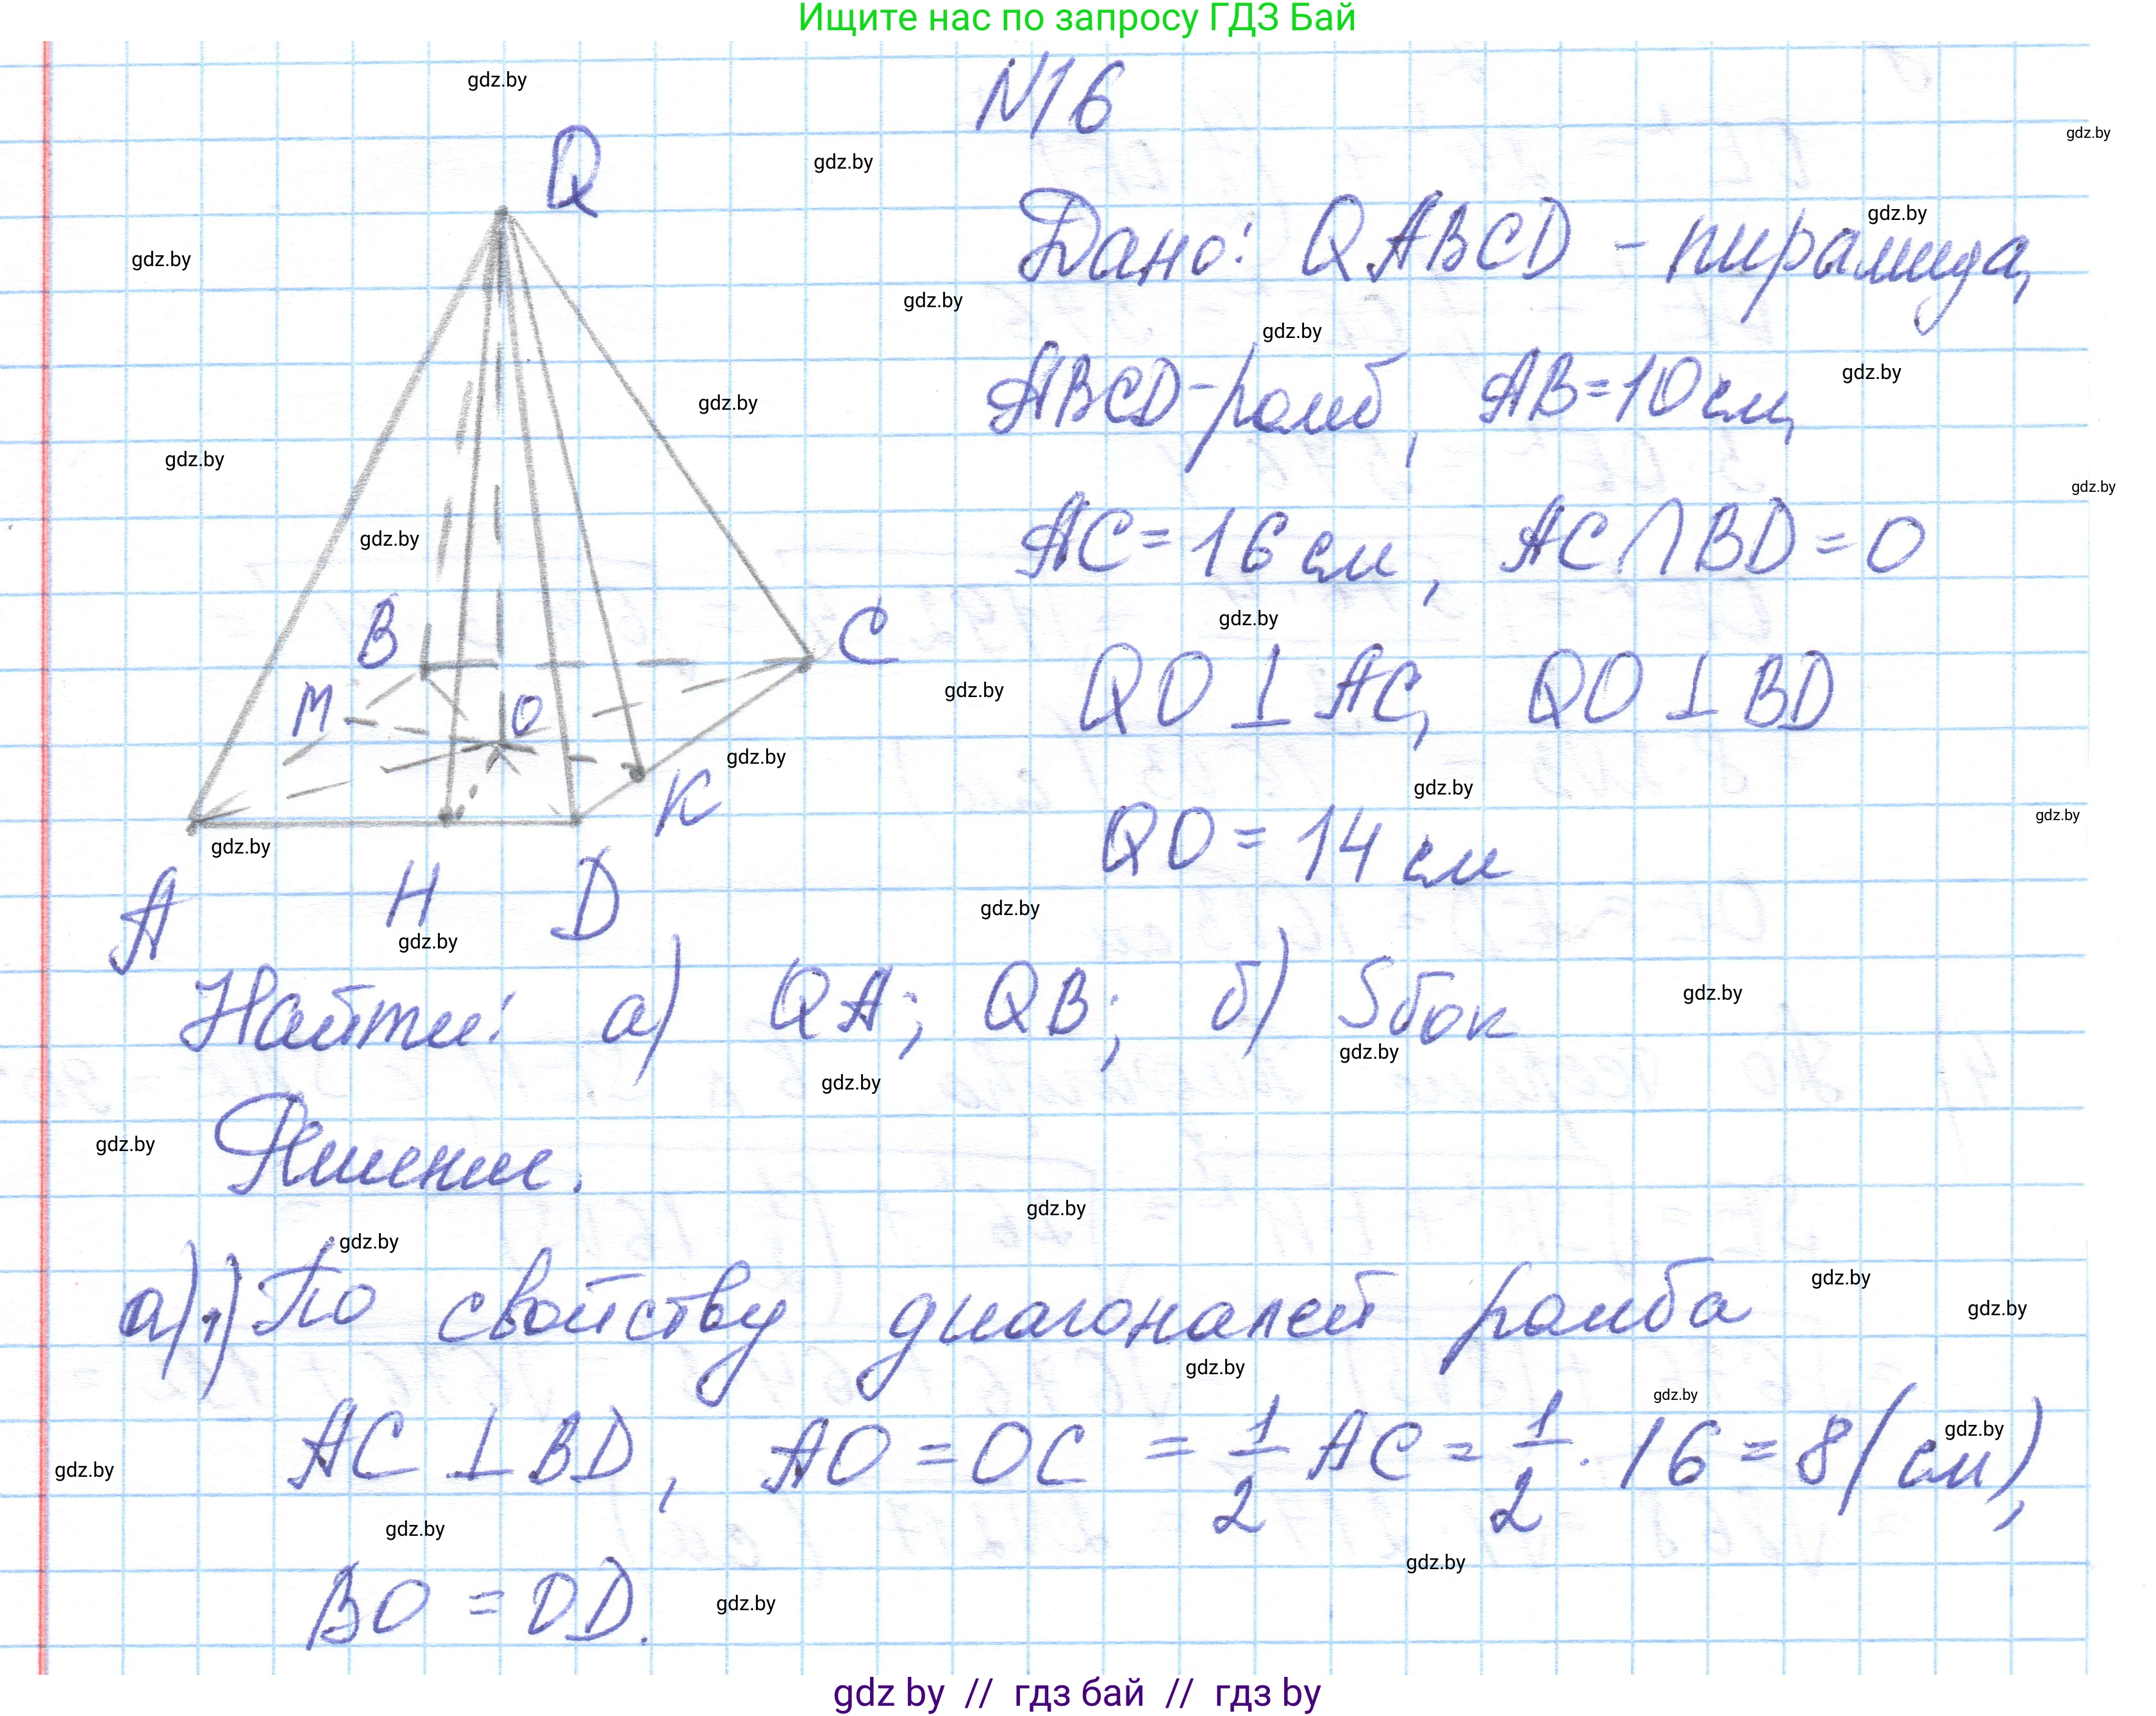 Ищите нас по запросу ГДЗ Бай
gdz.by
N16
gdz.by
Q
gdz.by
Дано: QABCD - пирамида,
gdz.by
gdz.by
gdz.by
gdz.by
ABCD-ромб, AB=10см,
gdz.by
gdz.by
gdz.by
gdz.by
AC=16 см, AC∩BD=O
gdz.by
B
C
gdz.by
QO⊥AC, QO⊥BD
M
O
gdz.by
gdz.by
K
gdz.by
QO=14 см
gdz.by
gdz.by
A H D
gdz.by
gdz.by
Найти: а) QA; QB; б) Sбок
gdz.by
gdz.by
gdz.by
Решение.
gdz.by
gdz.by
gdz.by
а)1) По свойству диагоналей ромба
gdz.by
gdz.by
gdz.by
gdz.by
AC⊥BD, AO=OC=1/2 AC=1/2·16=8(см),
gdz.by
gdz.by
gdz.by
gdz.by
BO=OD.
gdz.by
gdz by // гдз бай // гдз by